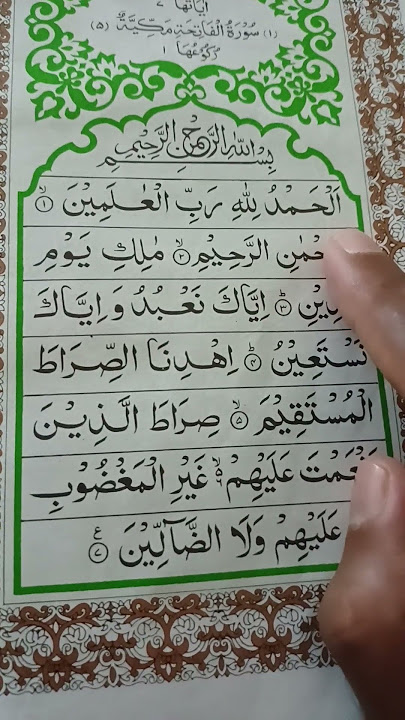 اٰيَاتُهَا ٧
(١) سُوْرَةُ الْفَاتِحَةِ مَكِّيَّةٌ (٥)
رُكُوْعُهَا ١
بِسْمِ اللّٰهِ الرَّحْمٰنِ الرَّحِيْمِ
اَلْحَمْدُ لِلّٰهِ رَبِّ الْعٰلَمِيْنَ ۙ﴿١﴾
الرَّحِيْمِ ۙ﴿٢﴾ مٰلِكِ يَوْمِ
﴿٣﴾ؕ اِيَّاكَ نَعْبُدُ وَ اِيَّاكَ
نَسْتَعِيْنُ ؕ﴿٤﴾ اِهْدِنَا الصِّرَاطَ
الْمُسْتَقِيْمَ ۙ﴿٥﴾ صِرَاطَ الَّذِيْنَ
عَلَيْهِمْ ۙ۬﴿٦﴾ غَيْرِ الْمَغْضُوْبِ
عَلَيْهِمْ وَلَا الضَّآلِّيْنَ ﴿٧﴾ ع